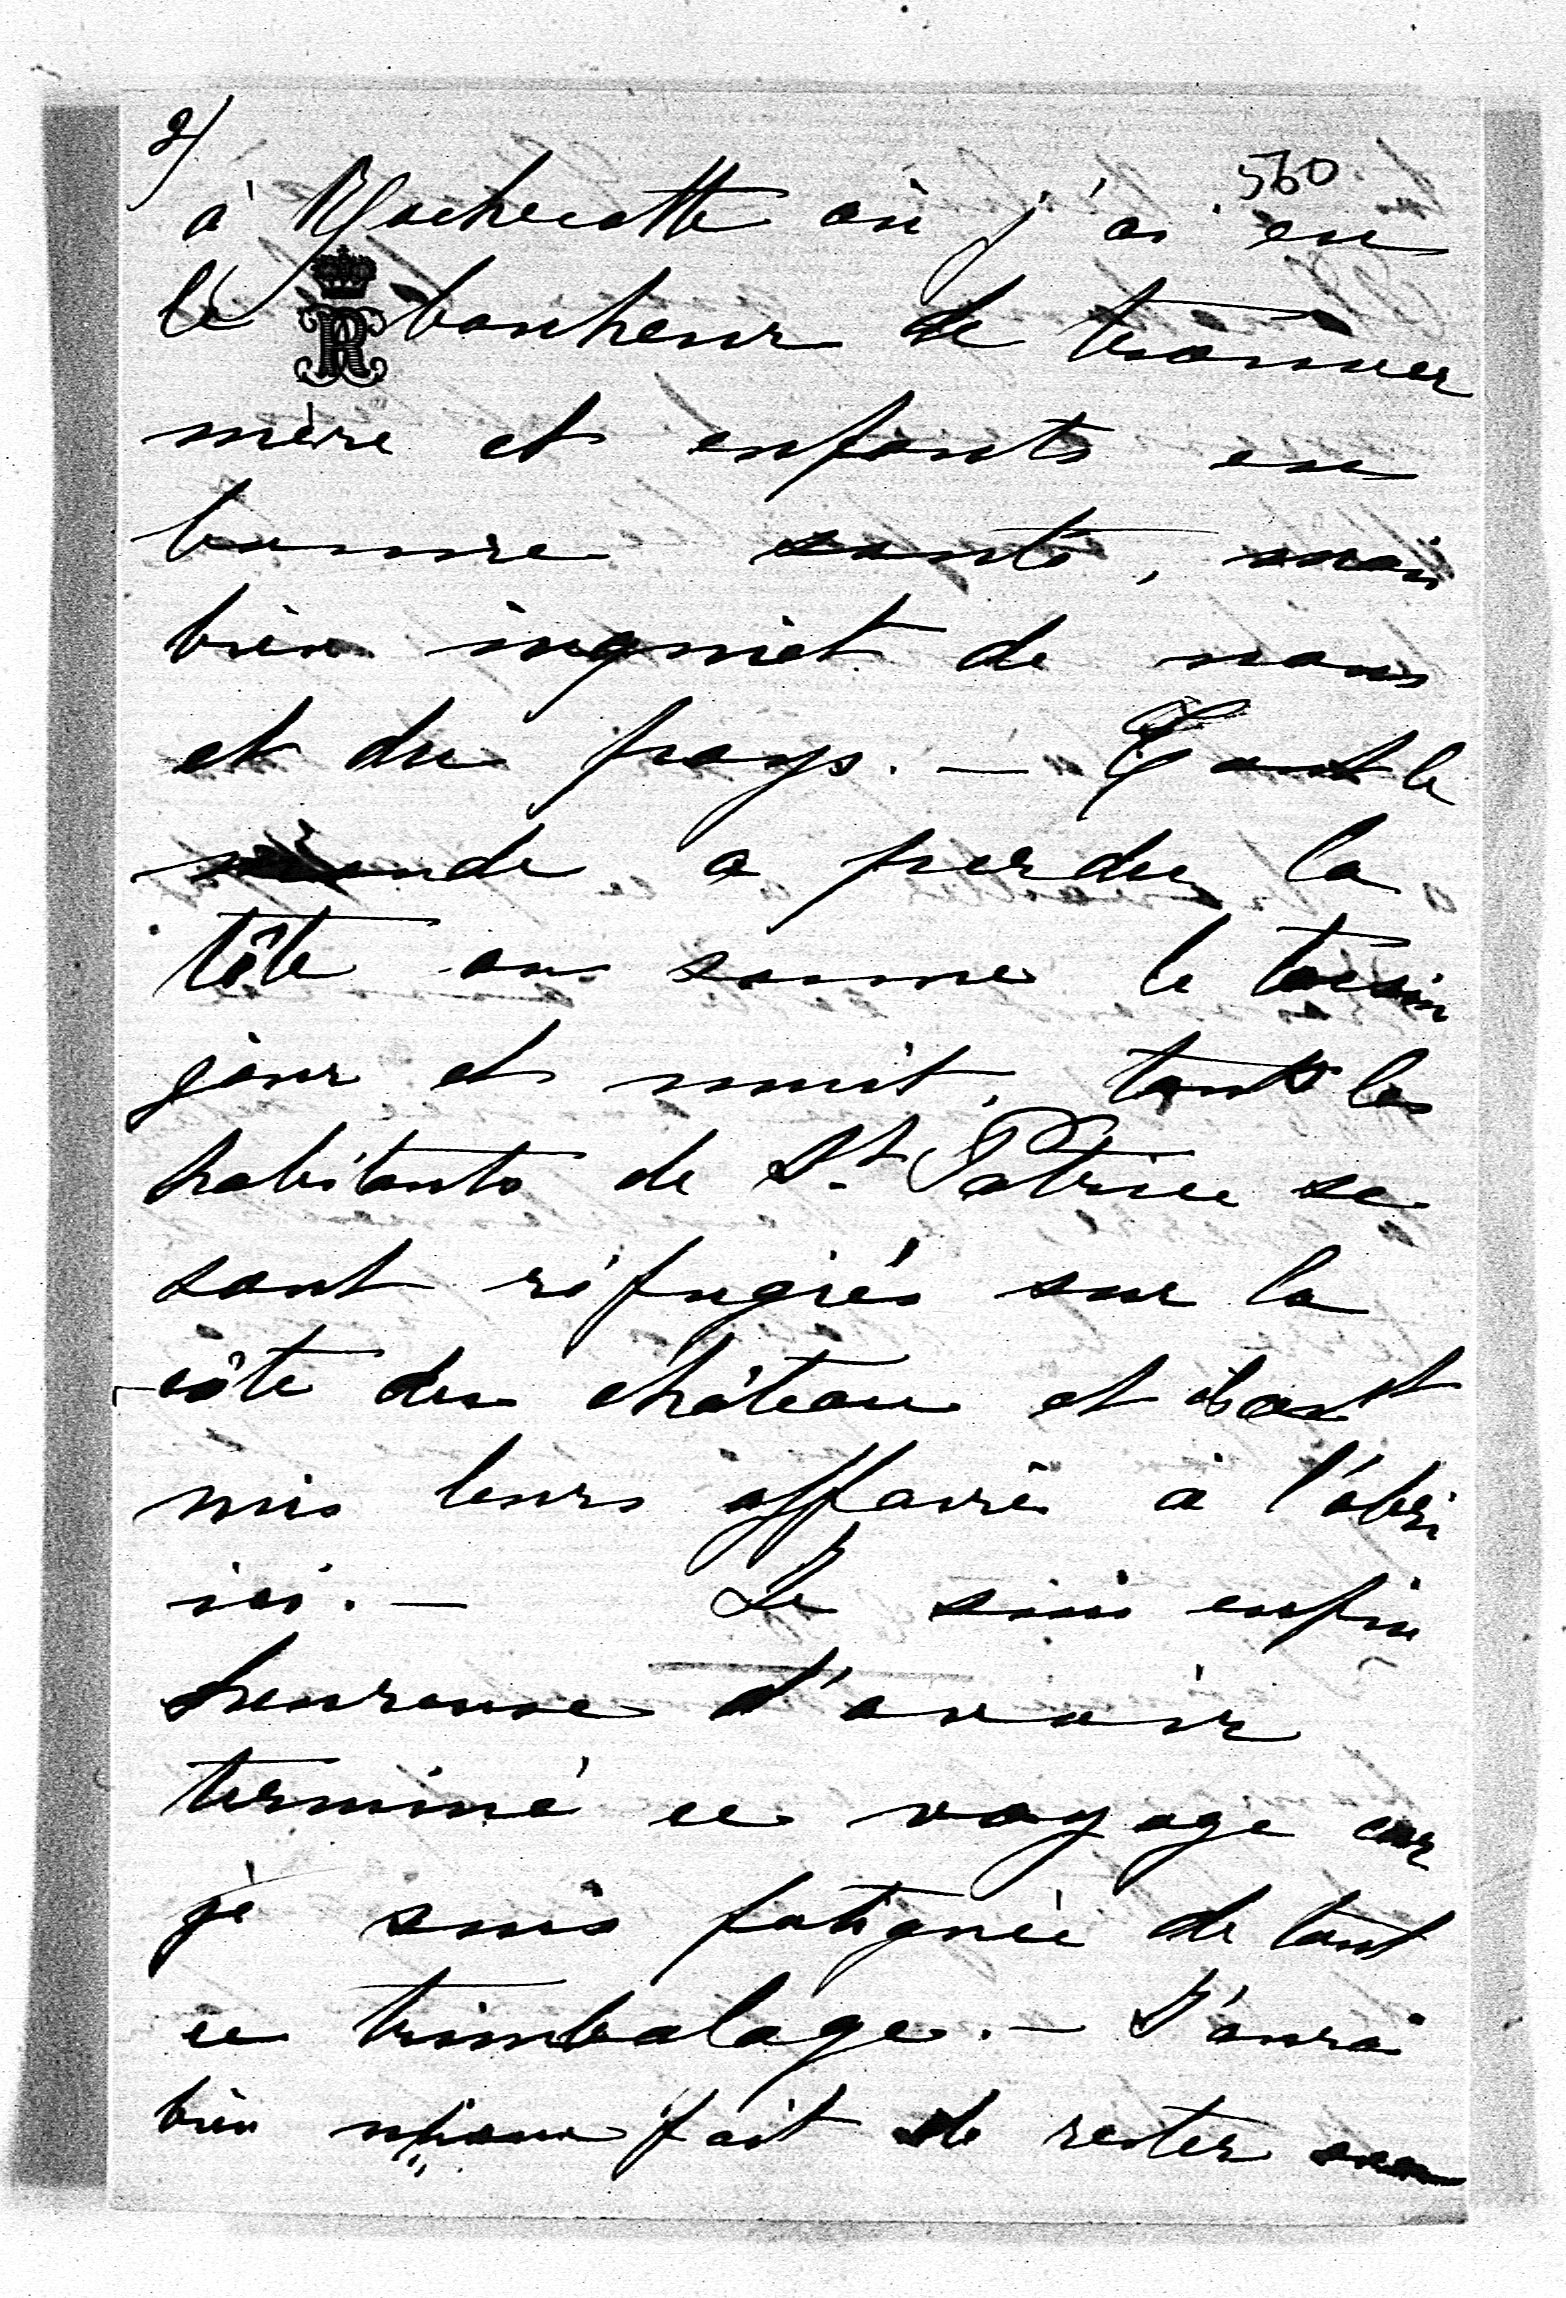 2)
560
à Rochecotte où j'ai eu
le bonheur de trouver
mère et enfants en
bonne santé, mais
bien inquiet de nous
et du pays. — Tout le
monde a perdu la
tête on sonne le tocsin
jour et nuit, tout les
habitants de St. Patrice se
sont réfugiés sur la
côte du château et ils ont
mis leurs affaires à l'abri
ici. — Je suis enfin
heureuse d'avoir
terminé ce voyage car
je suis fatiguée de tout
ce trimbalage. — J'aurai
bien mieux fait de rester